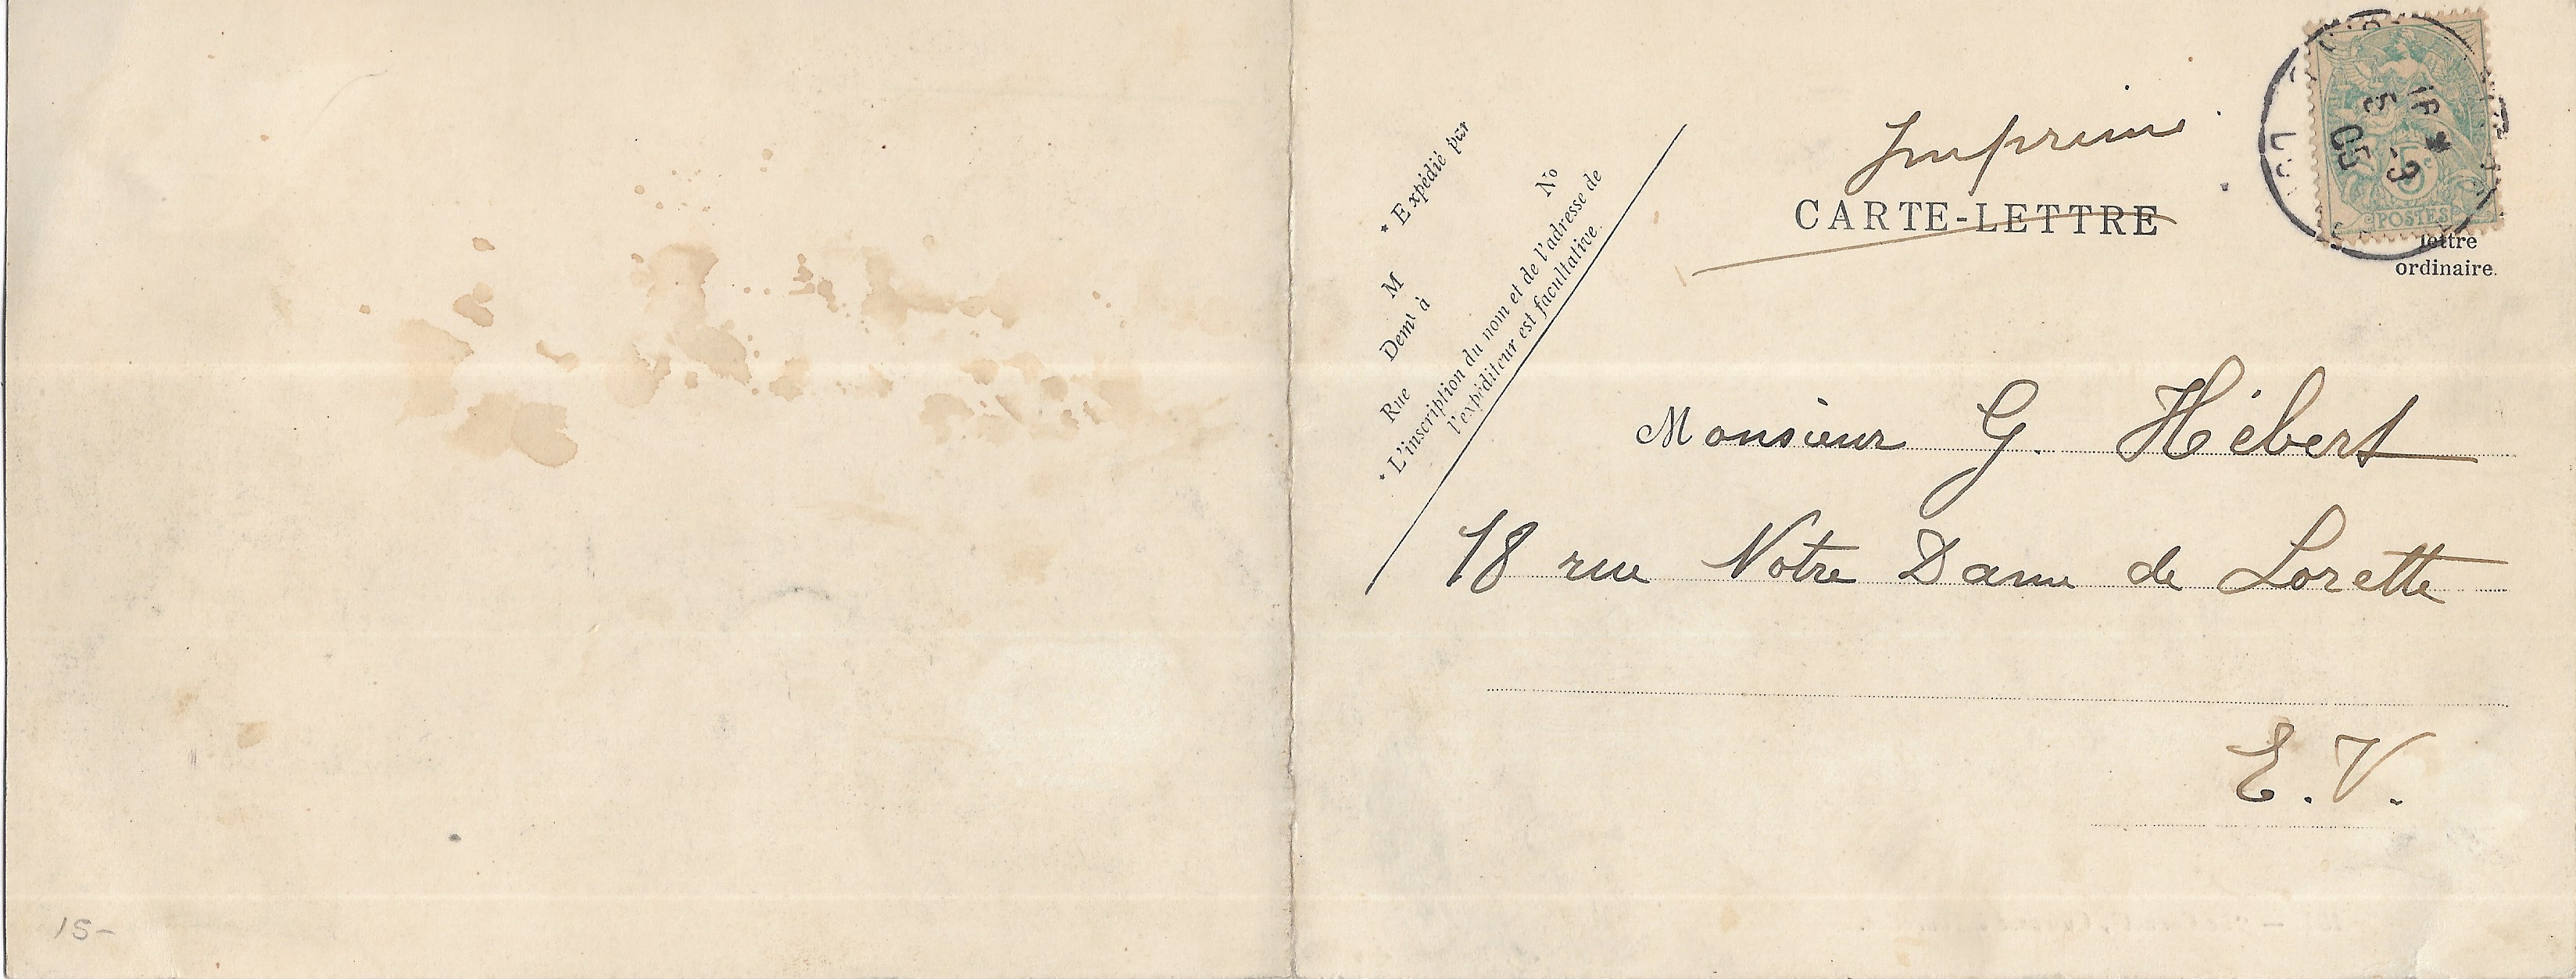 Imprimé
CARTE-LETTRE
5c
POSTES
05
lettre
ordinaire.
* Expédié par
M
Demt à
Rue
No
* L'inscription du nom et de l'adresse de
l'expéditeur est facultative.
Monsieur G. Hébert
18 rue Notre Dame de Lorette
E. V.
15-